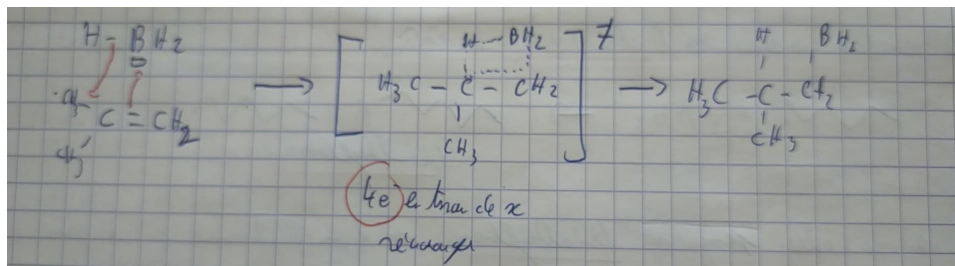 H - BH2
CH3
C = CH2
CH3
H --- BH2
H3C - C - CH2
CH3
7
H BH2
H3C - C - CH2
CH3
4e en train de